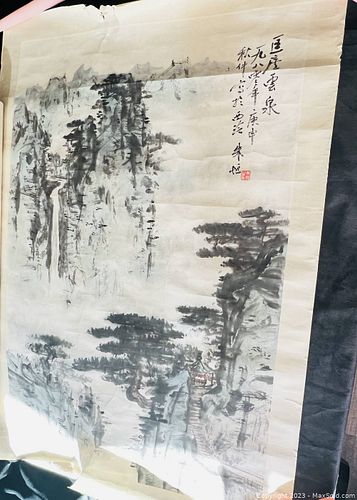 匡庐雲泉
一九八〇年庚申
秋仲写於西泠 朱恒
Copyright 2023 - MaxSold.com